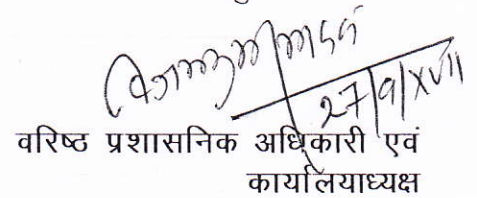 27/9/XVII
वरिष्ठ प्रशासनिक अधिकारी एवं
कार्यालयाध्यक्ष